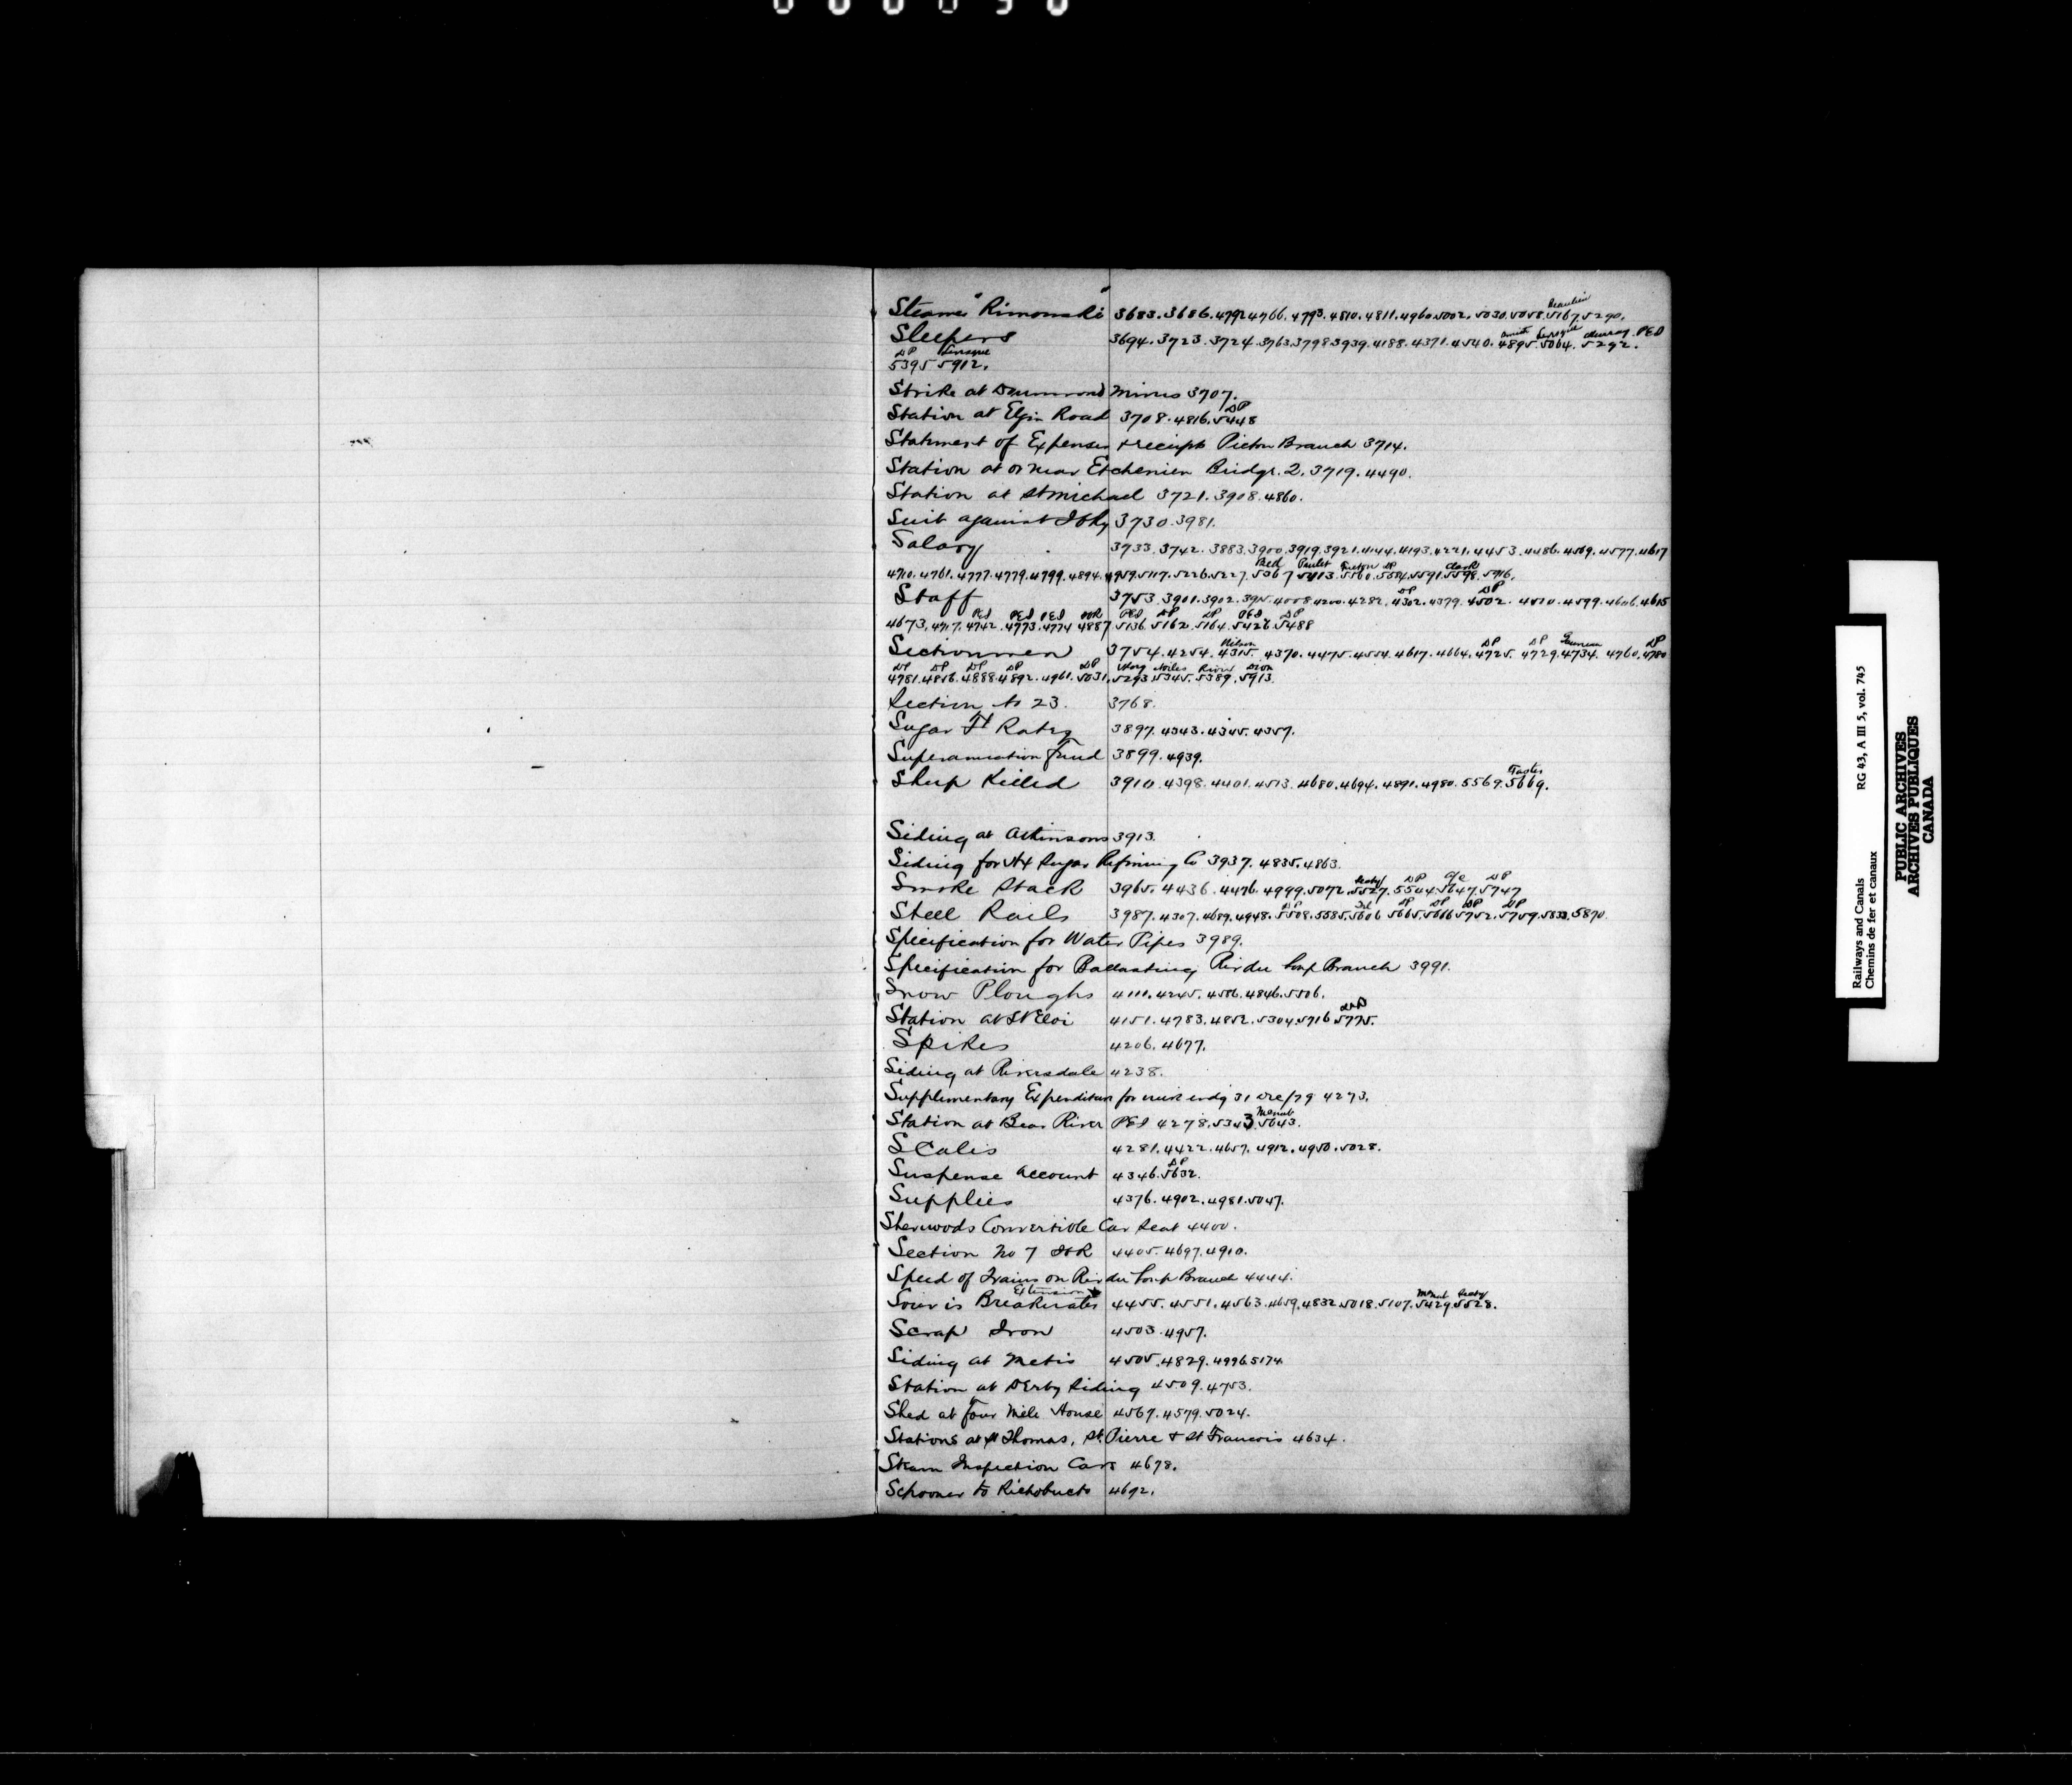 Steamer "Rimouski" 3683. 3686. 4792 4766. 4793. 4810. 4811. 4960. 5002. 5030. 5058. 5167. 5290.
Beaulieu
Sleepers 3694. 3723. 3724. 3763. 3798 3939. 4188. 4371. 4540. 4895. 5064. 5292.
Smith Levesque Murray PEI
DP Levesque
5395 5912.
Strike at Drummond Mines 3707.
Station at Elgin Road 3708. 4816. 5448
DP
Statment of Expenses & receipts Pictou Branch 3714.
Station at or near Etchemin Bridge. 2. 3719. 4490.
Station at St Michael 3721. 3908. 4860.
Suit against I C Ry 3730. 3981.
Salary 3733. 3742. 3883. 3900. 3919. 3921. 4144. 4193. 4221. 4453. 4486. 4569. 4577. 4617
4710. 4761. 4777. 4779. 4799. 4894. 4959. 5117. 5226. 5227. 5367 5413. 5560. 5584. 5591. 5598. 5716.
Staff 3753. 3901. 3902. 3915. 4008. 4200. 4282. 4302. 4379. 4502. 4510. 4599. 4606. 4615
DP DP
PEI PEI PEI ICR PEI DP DP PEI DP
4673. 4717. 4742. 4773. 4774 4887 5136. 5162. 5164. 5426. 5488
Sectionmen 3754. 4254. 4315. 4370. 4475. 4554. 4617. 4664. 4725. 4729. 4734. 4760. 4780
DP DP DP
DP DP DP DP DP
4781. 4856. 4888. 4892. 4961. 5031. 5293. 5345. 5389. 5913.
Section No 23. 3768.
Sugar Ft Rates 3897. 4343. 4345. 4357.
Superannuation Fund 3899. 4939.
Sheep Killed 3910. 4398. 4401. 4513. 4680. 4694. 4891. 4980. 5569. 5669.
Foster
Siding at Atkinsons 3913.
Siding for Hx Sugar Refining Co 3937. 4835. 4863.
Smoke Stack 3965. 4436. 4476. 4999. 5072. 5527. 5504. 5647. 5747
DP DP
Steel Rails 3987. 4307. 4689. 4948. 5508. 5585. 5606 5665. 5666 5752. 5759. 5833. 5870.
DP DP DP DP DP
Specification for Water Pipes 3989.
Specification for Ballasting Riv du Loup Branch 3991.
Snow Ploughs 4111. 4245. 4586. 4846. 5506.
Station at St Eloi 4151. 4783. 4852. 5304. 5716 5775.
DP
Spikes 4206. 4677.
Siding at Riversdale 4238.
Supplementary Expenditure for week endg 31 Dec/79 4273.
Station at Bear River PEI 4278. 5343. 5643.
McNab
Scales 4281. 4422. 4657. 4912. 4950. 5028.
Suspense Account 4346. 5632.
DP
Supplies 4376. 4902. 4981. 5047.
Sherwoods Convertible Car Seat 4400.
Section No 7 ICR 4405. 4697. 4910.
Speed of Trains on Riv du Loup Branch 4444.
Extension
Souris Breakwater 4455. 4551. 4563. 4659. 4832. 5018. 5107. 5429. 5528.
McNab
Scrap Iron 4503. 4957.
Siding at Metis 4505. 4829. 4996. 5174.
Station at Derby Siding 4509. 4753.
Shed at Four Mile House 4567. 4579. 5024.
Stations at St Thomas, St Pierre & St Francois 4634.
Steam Inspection Cars 4678.
Schooner to Richibucto 4692.
Railways and Canals RG 43, A III 5, vol. 745
Chemins de fer et canaux
PUBLIC ARCHIVES
ARCHIVES PUBLIQUES
CANADA